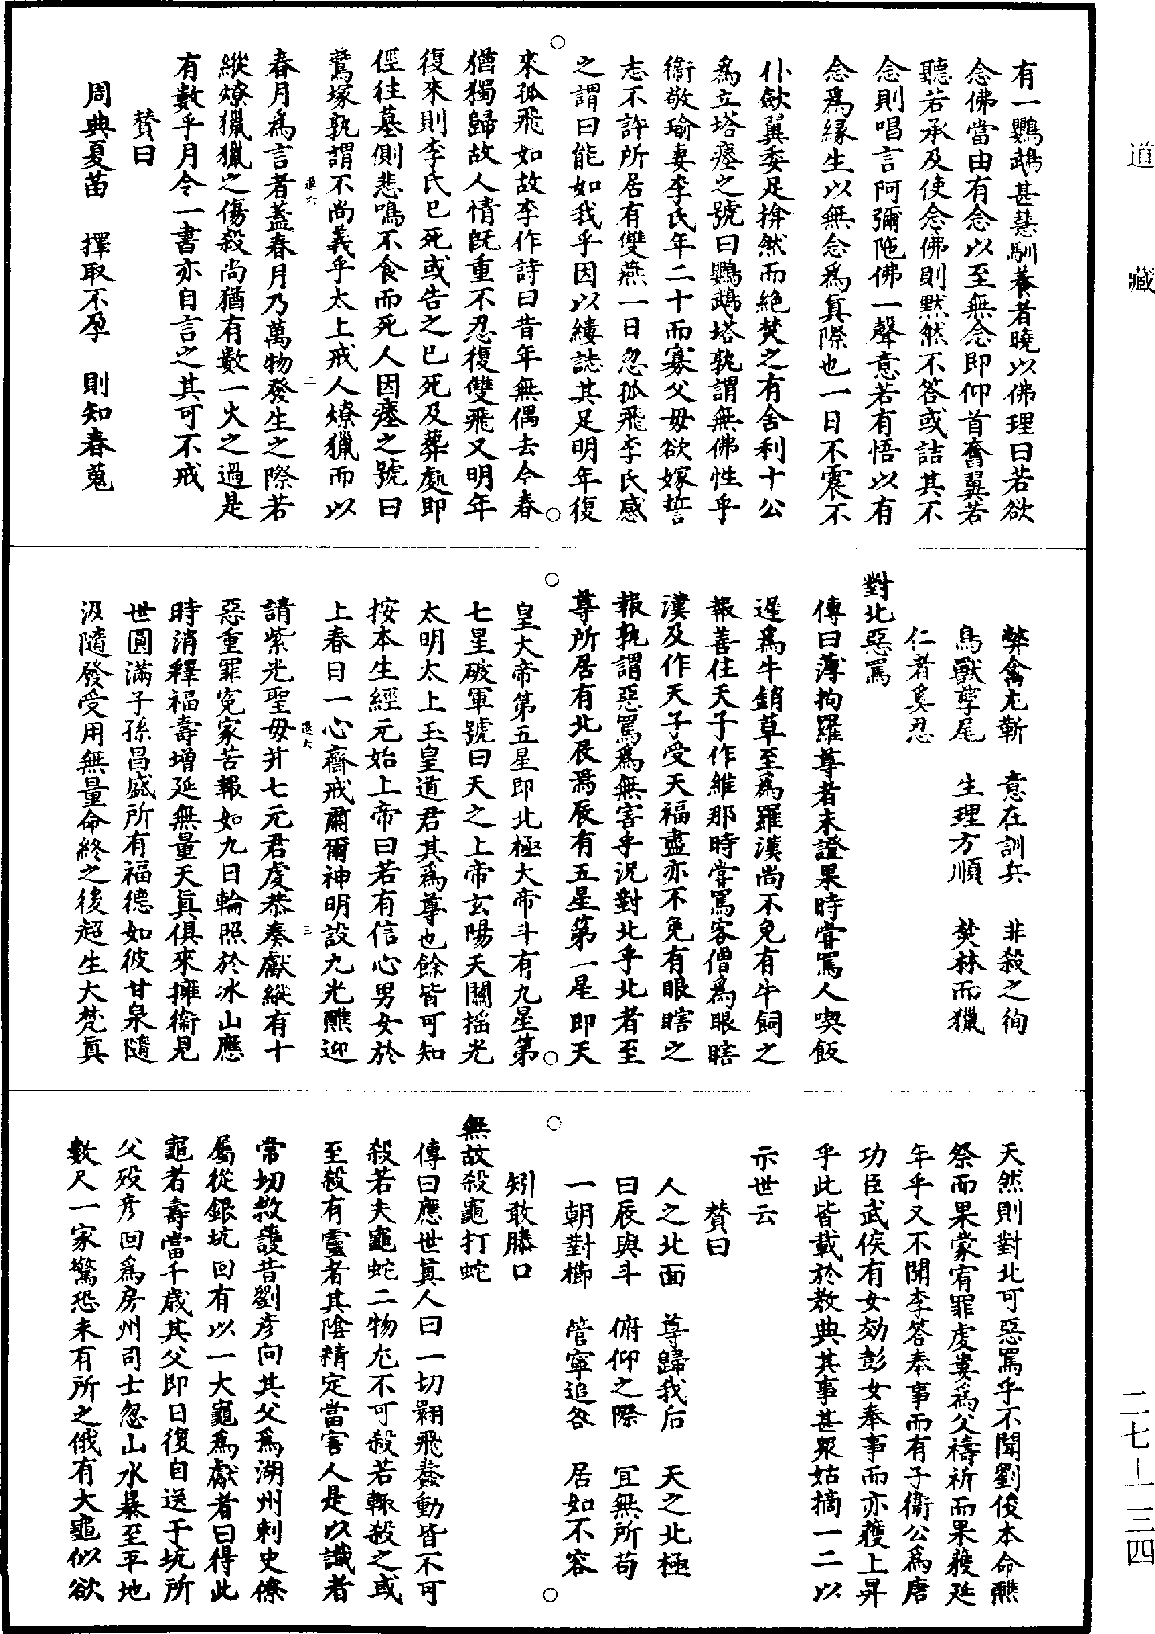 道藏
有一鸚鵡甚慧馴養者曉以佛理曰若欲
念佛當由有念以至無念即仰首奮翼若
聽若承及使念佛則默然不答或詰其不
念則唱言阿彌陁佛一聲意若有悟以有
念為緣生以無念為眞際也一日不震不
仆歛翼委足揜然而絕焚之有舍利十公
爲立塔瘞之號曰鸚鵡塔孰謂無佛性乎
衛敬瑜妻李氏年二十而寡父母欲嫁誓
志不許所居有雙燕一日忽孤飛李氏感
之謂曰能如我乎因以縷誌其足明年復
來孤飛如故李作詩曰昔年無偶去今春
猶獨歸故人情旣重不忍復雙飛又明年
復來則李氏已死或告之已死及葬處即
徑往墓側悲鳴不食而死人因瘞之號曰
鷰塚孰謂不尚義乎太上戒人燎獵而以
春月為言者蓋春月乃萬物發生之際若
縱燎獵獵之傷殺尚猶有數一火之過是
有數乎月令一書亦自言之其可不戒
贊曰
周典夏苗　擇取不孕　則知春蒐
弊禽尤斬　意在訓兵　非殺之徇
鳥獸孳尾　生理方順　焚林而獵
仁者奚忍
對北惡罵
傳曰薄拘羅尊者未證果時嘗罵人喫飯
遲為牛齝草至為羅漢尚不免有牛飼之
報善住天子作維那時嘗罵客僧為眼瞎
漢及作天子受天福盡亦不免有眼瞎之
報孰謂惡罵為無害乎況對北乎北者至
尊所居有北辰焉辰有五星第一星即天
皇大帝第五星即北極大帝斗有九星第
七星破軍號曰天之上帝玄陽天關搖光
太明太上玉皇道君其為尊也餘皆可知
按本生經元始上帝曰若有信心男女於
上春日一心齋戒肅爾神明設九光醮迎
請紫光聖母并七元君虔恭奏獻縱有十
惡重罪冤家苦報如九日輪照於冰山應
時消釋福壽增延無量天眞俱來擁衛見
世圓滿子孫昌盛所有福德如彼甘泉隨
汲隨發受用無量命終之後超生大梵眞
天然則對北可惡罵乎不聞劉俊本命醮
祭而果蒙宥罪虔婁為父禱祈而果獲延
年乎又不聞李答奉事而有子衛公為唐
功臣武侯有女効彭女奉事而亦獲上昇
乎此皆載於教典其事甚衆姑摘一二以
示世云
贊曰
人之北面　尊歸我后　天之北極
曰辰與斗　俯仰之際　宜無所苟
一朝對櫛　管寧追咎　居如不容
矧敢滕口
無故殺龜打蛇
傳曰應世眞人曰一切翾飛蠢動皆不可
殺若夫龜蛇二物尤不可殺若輒殺之或
至殺有靈者其陰精定當害人是以識者
常切救護昔劉彦向其父為湖州刺史僚
屬從銀坑回有以一大龜為獻者曰得此
龜者壽當千歲其父即日復自送于坑所
父殁彦回為房州司士忽山水暴至平地
數尺一家驚恐未有所之俄有大龜似欲
二七-一三四